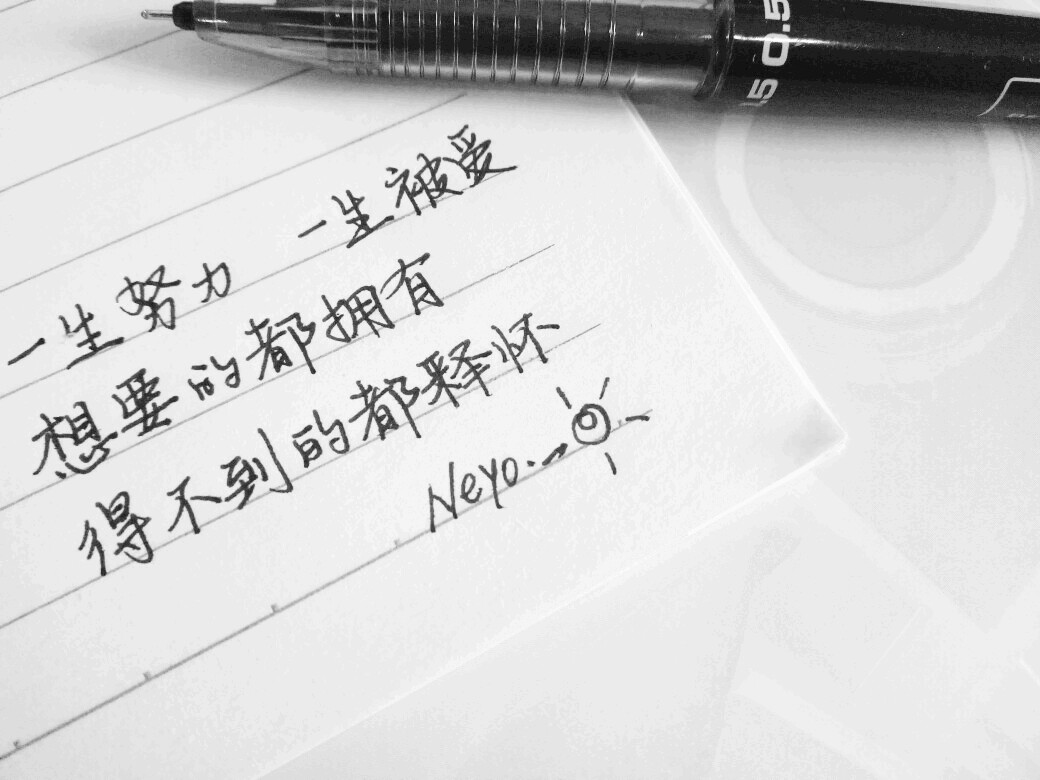 一生努力 一生被爱
想要的都拥有
得不到的都释怀
Neyo.
0.5